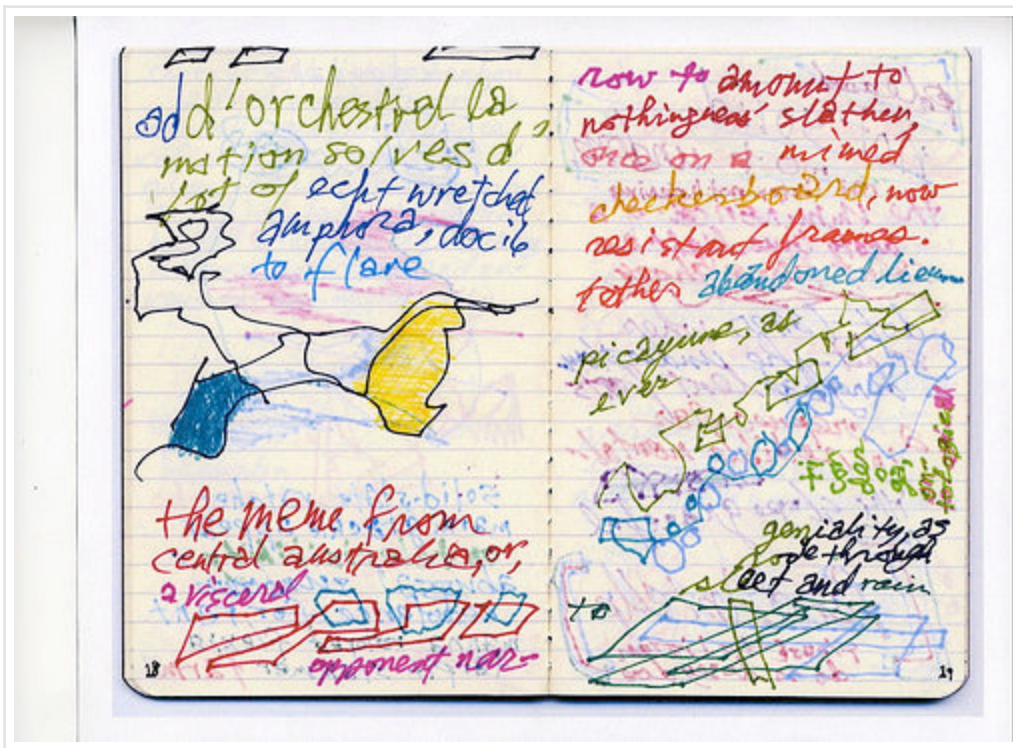 add 'orchestral la
mation solves d
lot of echt wretched
amphora, docile
to flare
the meme from
central australia, or,
a visceral
opponent nar-
18
row to amount to
nothingness' slather,
once on a mimed
checkerboard, now
resistant frames.
tother abandoned
picayune, as
ever
ontological
geniality, as
hope through
sleet and rain
to
19